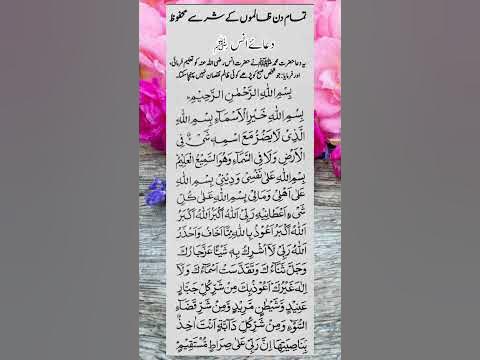 تمام دن ظالموں کے شر سے محفوظ
دعائے انس ؓ
یہ دعا حضرت محمد ﷺ نے حضرت انس رضی اللہ عنہ کو تعلیم فرمائی،
اور فرمایا: جو شخص صبح کو پڑھے کوئی ظالم نقصان نہیں پہنچا سکتا۔
بِسْمِ اللهِ الرَّحْمٰنِ الرَّحِيْمِ
بِسْمِ اللهِ خَيْرِ الْاَسْمَاءِ بِسْمِ اللهِ
الَّذِىْ لَا يَضُرُّ مَعَ اسْمِهٖ شَىْءٌ فِى
الْاَرْضِ وَلَا فِى السَّمَاءِ وَهُوَ السَّمِيْعُ الْعَلِيْمُ
بِسْمِ اللهِ عَلٰى نَفْسِىْ وَدِيْنِىْ بِسْمِ اللهِ
عَلٰى اَهْلِىْ وَمَالِىْ بِسْمِ اللهِ عَلٰى كُلِّ
شَىْءٍ اَعْطَانِيْهِ رَبِّىْ اَللهُ اَكْبَرُ اَللهُ اَكْبَرُ
اَللهُ اَكْبَرُ اَعُوْذُ بِاللهِ مِمَّا اَخَافُ وَاَحْذَرُ
اَللهُ رَبِّىْ لَا اُشْرِكُ بِهٖ شَيْئًا عَزَّ جَارُكَ
وَجَلَّ ثَنَاءُكَ وَتَقَدَّسَتْ اَسْمَاءُكَ وَلَا
اِلٰهَ غَيْرُكَ اَعُوْذُ بِكَ مِنْ شَرِّ كُلِّ جَبَّارٍ
عَنِيْدٍ وَّشَيْطٰنٍ مَّرِيْدٍ وَّمِنْ شَرِّ قَضَاءِ
السُّوْءِ وَمِنْ شَرِّ كُلِّ دَابَّةٍ اَنْتَ اٰخِذٌ
بِنَاصِيَتِهَا اِنَّ رَبِّىْ عَلٰى صِرَاطٍ مُّسْتَقِيْمٍ